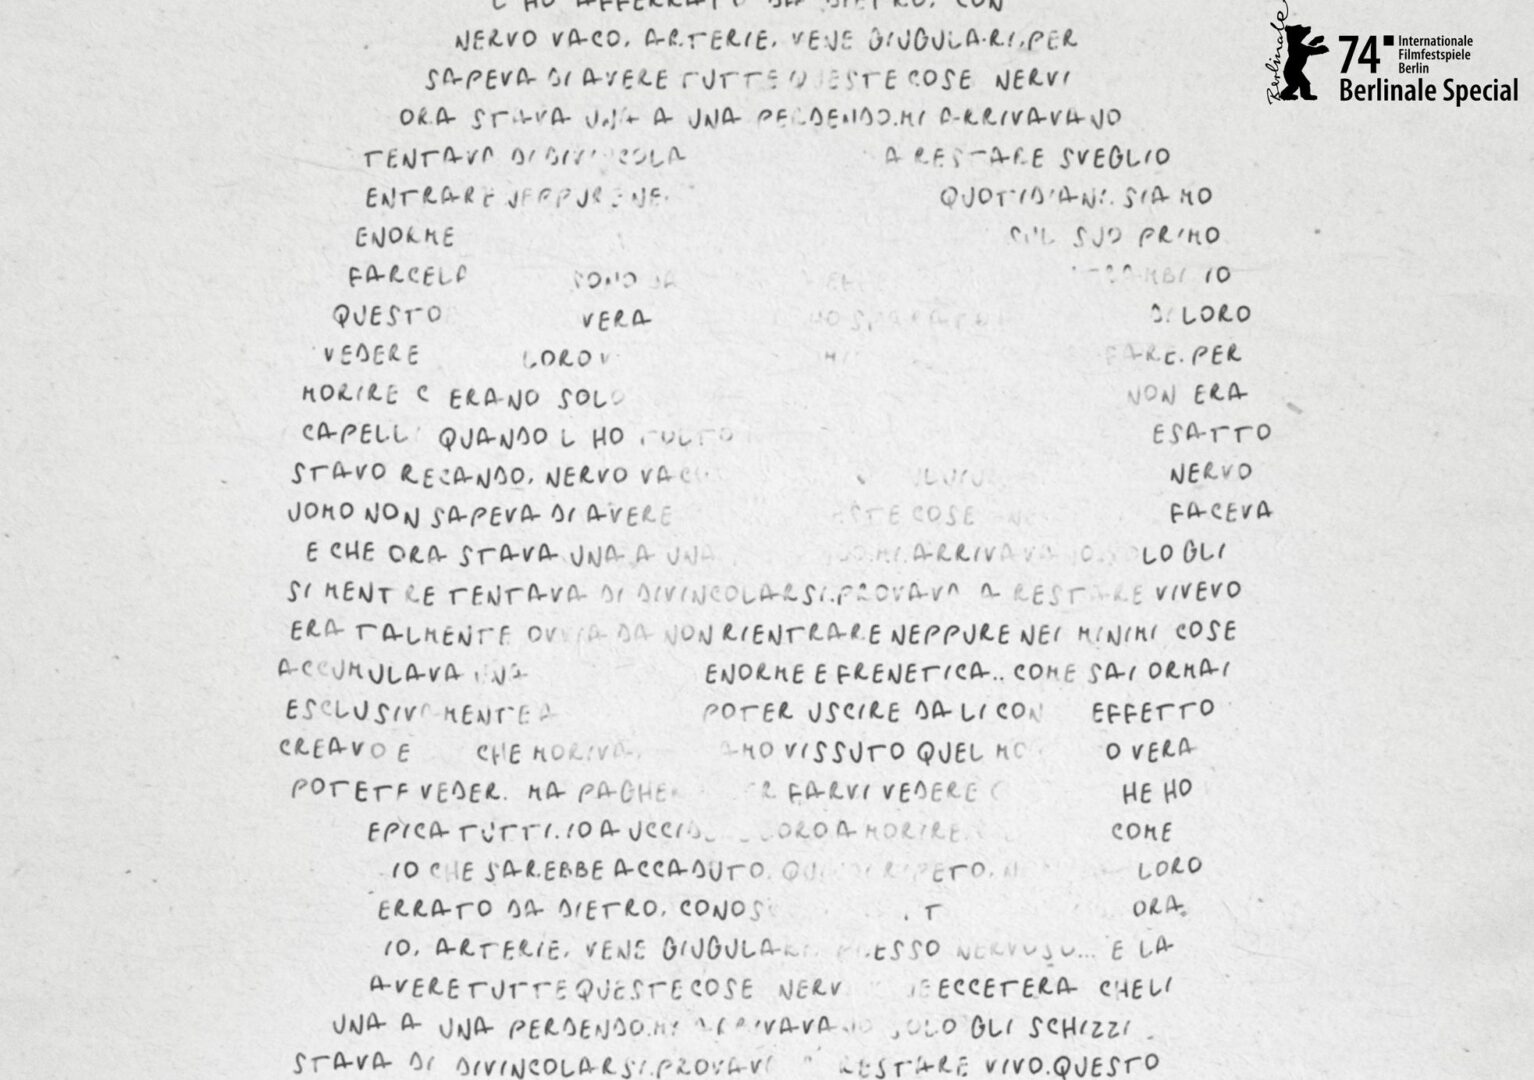 L HO AFFERRATO DA DIETRO, CON
NERVO VACO, ARTERIE, VENE GIUGULARI, PER
SAPEVA DI AVERE TUTTE QUESTE COSE NERVI
ORA STAVA UNA A UNA PERDENDO.MI ARRIVAVANO
TENTAVA DI DIVINCOLA A RESTARE SVEGLIO
ENTRARE NEPPURE NE QUOTIDIANI. SIAMO
ENORME SUL SUO PRIMO
FARCELA SONO IO
QUESTO VERA DI LORO
VEDERE LORO V FARE. PER
MORIRE C ERANO SOLO NON ERA
CAPELLI QUANDO L HO TOLTO ESATTO
STAVO RECANDO, NERVO VAC NERVO
UOMO NON SAPEVA DI AVERE STE COSE FACEVA
E CHE ORA STAVA UNA A UNA DO.MI ARRIVAVANO SOLO GLI
SI MENTRE TENTAVA DI DIVINCOLARSI.PROVAVA A RESTARE VIVEVO
ERA TALMENTE OVVIA DA NON RIENTRARE NEPPURE NEI MINIMI COSE
ACCUMULAVA UNA ENORME E FRENETICA.. COME SAI ORMAI
ESCLUSIVAMENTE A POTER USCIRE DA LI CON EFFETTO
CREAVO E CHE MORIVA AMO VISSUTO QUEL MO O VERA
POTETE VEDER. MA PAGHE R FARVI VEDERE C HE HO
EPICA TUTTI.IO A UCCID LORO A MORIRE. COME
IO CHE SAREBBE ACCADUTO. QUINDI RIPETO, N LORO
ERRATO DA DIETRO, CONOS . T ORA.
IO, ARTERIE, VENE GIUGULARI, PLESSO NERVOSO... E LA
AVERE TUTTE QUESTE COSE NERV E ECCETERA CHE LI
UNA A UNA PERDENDO.MI ARRIVAVANO SOLO GLI SCHIZZI
STAVA DI DIVINCOLARSI.PROVAV RESTARE VIVO.QUESTO
Berlinale
74 Internationale
Filmfestspiele
Berlin
Berlinale Special